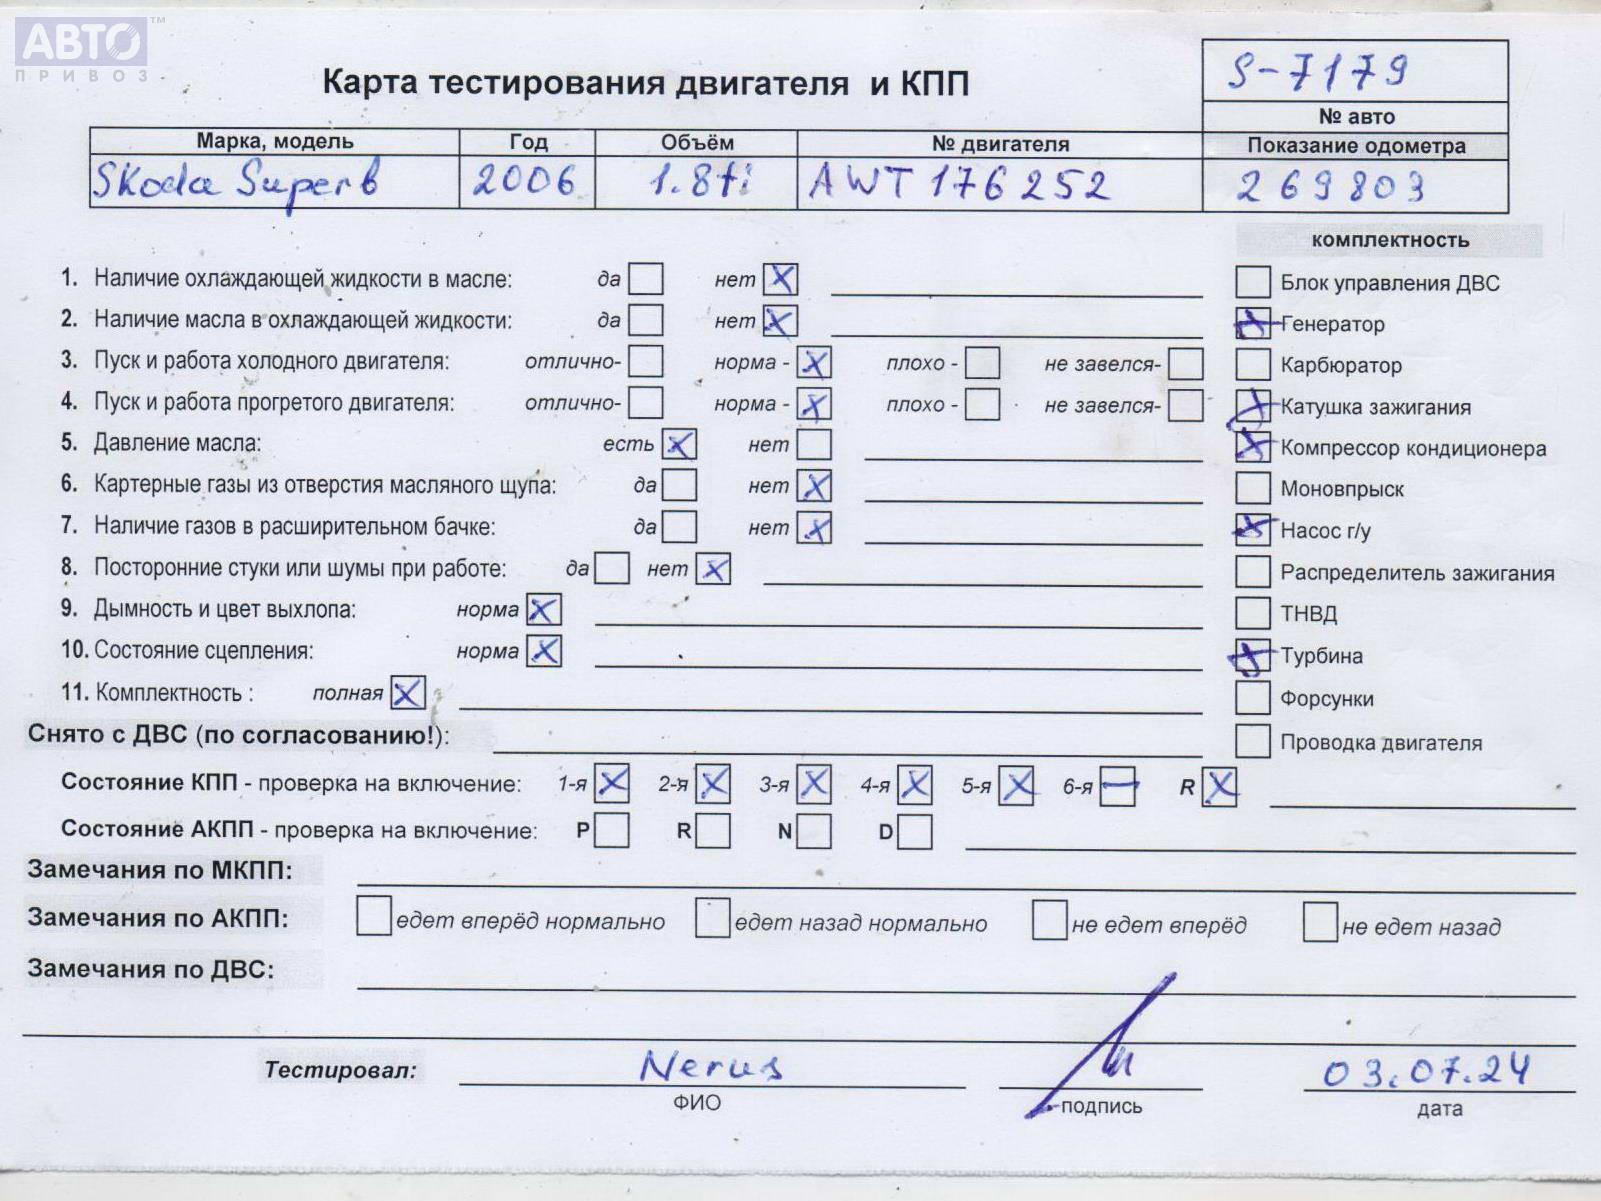 АВТО™
ПРИВОЗ
Карта тестирования двигателя и КПП
S-7179
№ авто
Марка, модель Год Объём № двигателя Показание одометра
Skoda Superb 2006 1.8ti AWT 176252 269803
комплектность
1. Наличие охлаждающей жидкости в масле: да нет X
Блок управления ДВС
2. Наличие масла в охлаждающей жидкости: да нет X
X Генератор
3. Пуск и работа холодного двигателя: отлично- норма - X плохо - не завелся-
Карбюратор
4. Пуск и работа прогретого двигателя: отлично- норма - X плохо - не завелся-
X Катушка зажигания
5. Давление масла: есть X нет
X Компрессор кондиционера
6. Картерные газы из отверстия масляного щупа: да нет X
Моновпрыск
7. Наличие газов в расширительном бачке: да нет X
X Насос г/у
8. Посторонние стуки или шумы при работе: да нет X
Распределитель зажигания
9. Дымность и цвет выхлопа: норма X
ТНВД
10. Состояние сцепления: норма X
X Турбина
11. Комплектность : полная X
Форсунки
Снято с ДВС (по согласованию!):
Проводка двигателя
Состояние КПП - проверка на включение: 1-я X 2-я X 3-я X 4-я X 5-я X 6-я — R X
Состояние АКПП - проверка на включение: P R N D
Замечания по МКПП:
Замечания по АКПП: едет вперёд нормально едет назад нормально не едет вперёд не едет назад
Замечания по ДВС:
Тестировал: Nerus 03.07.24
ФИО подпись дата